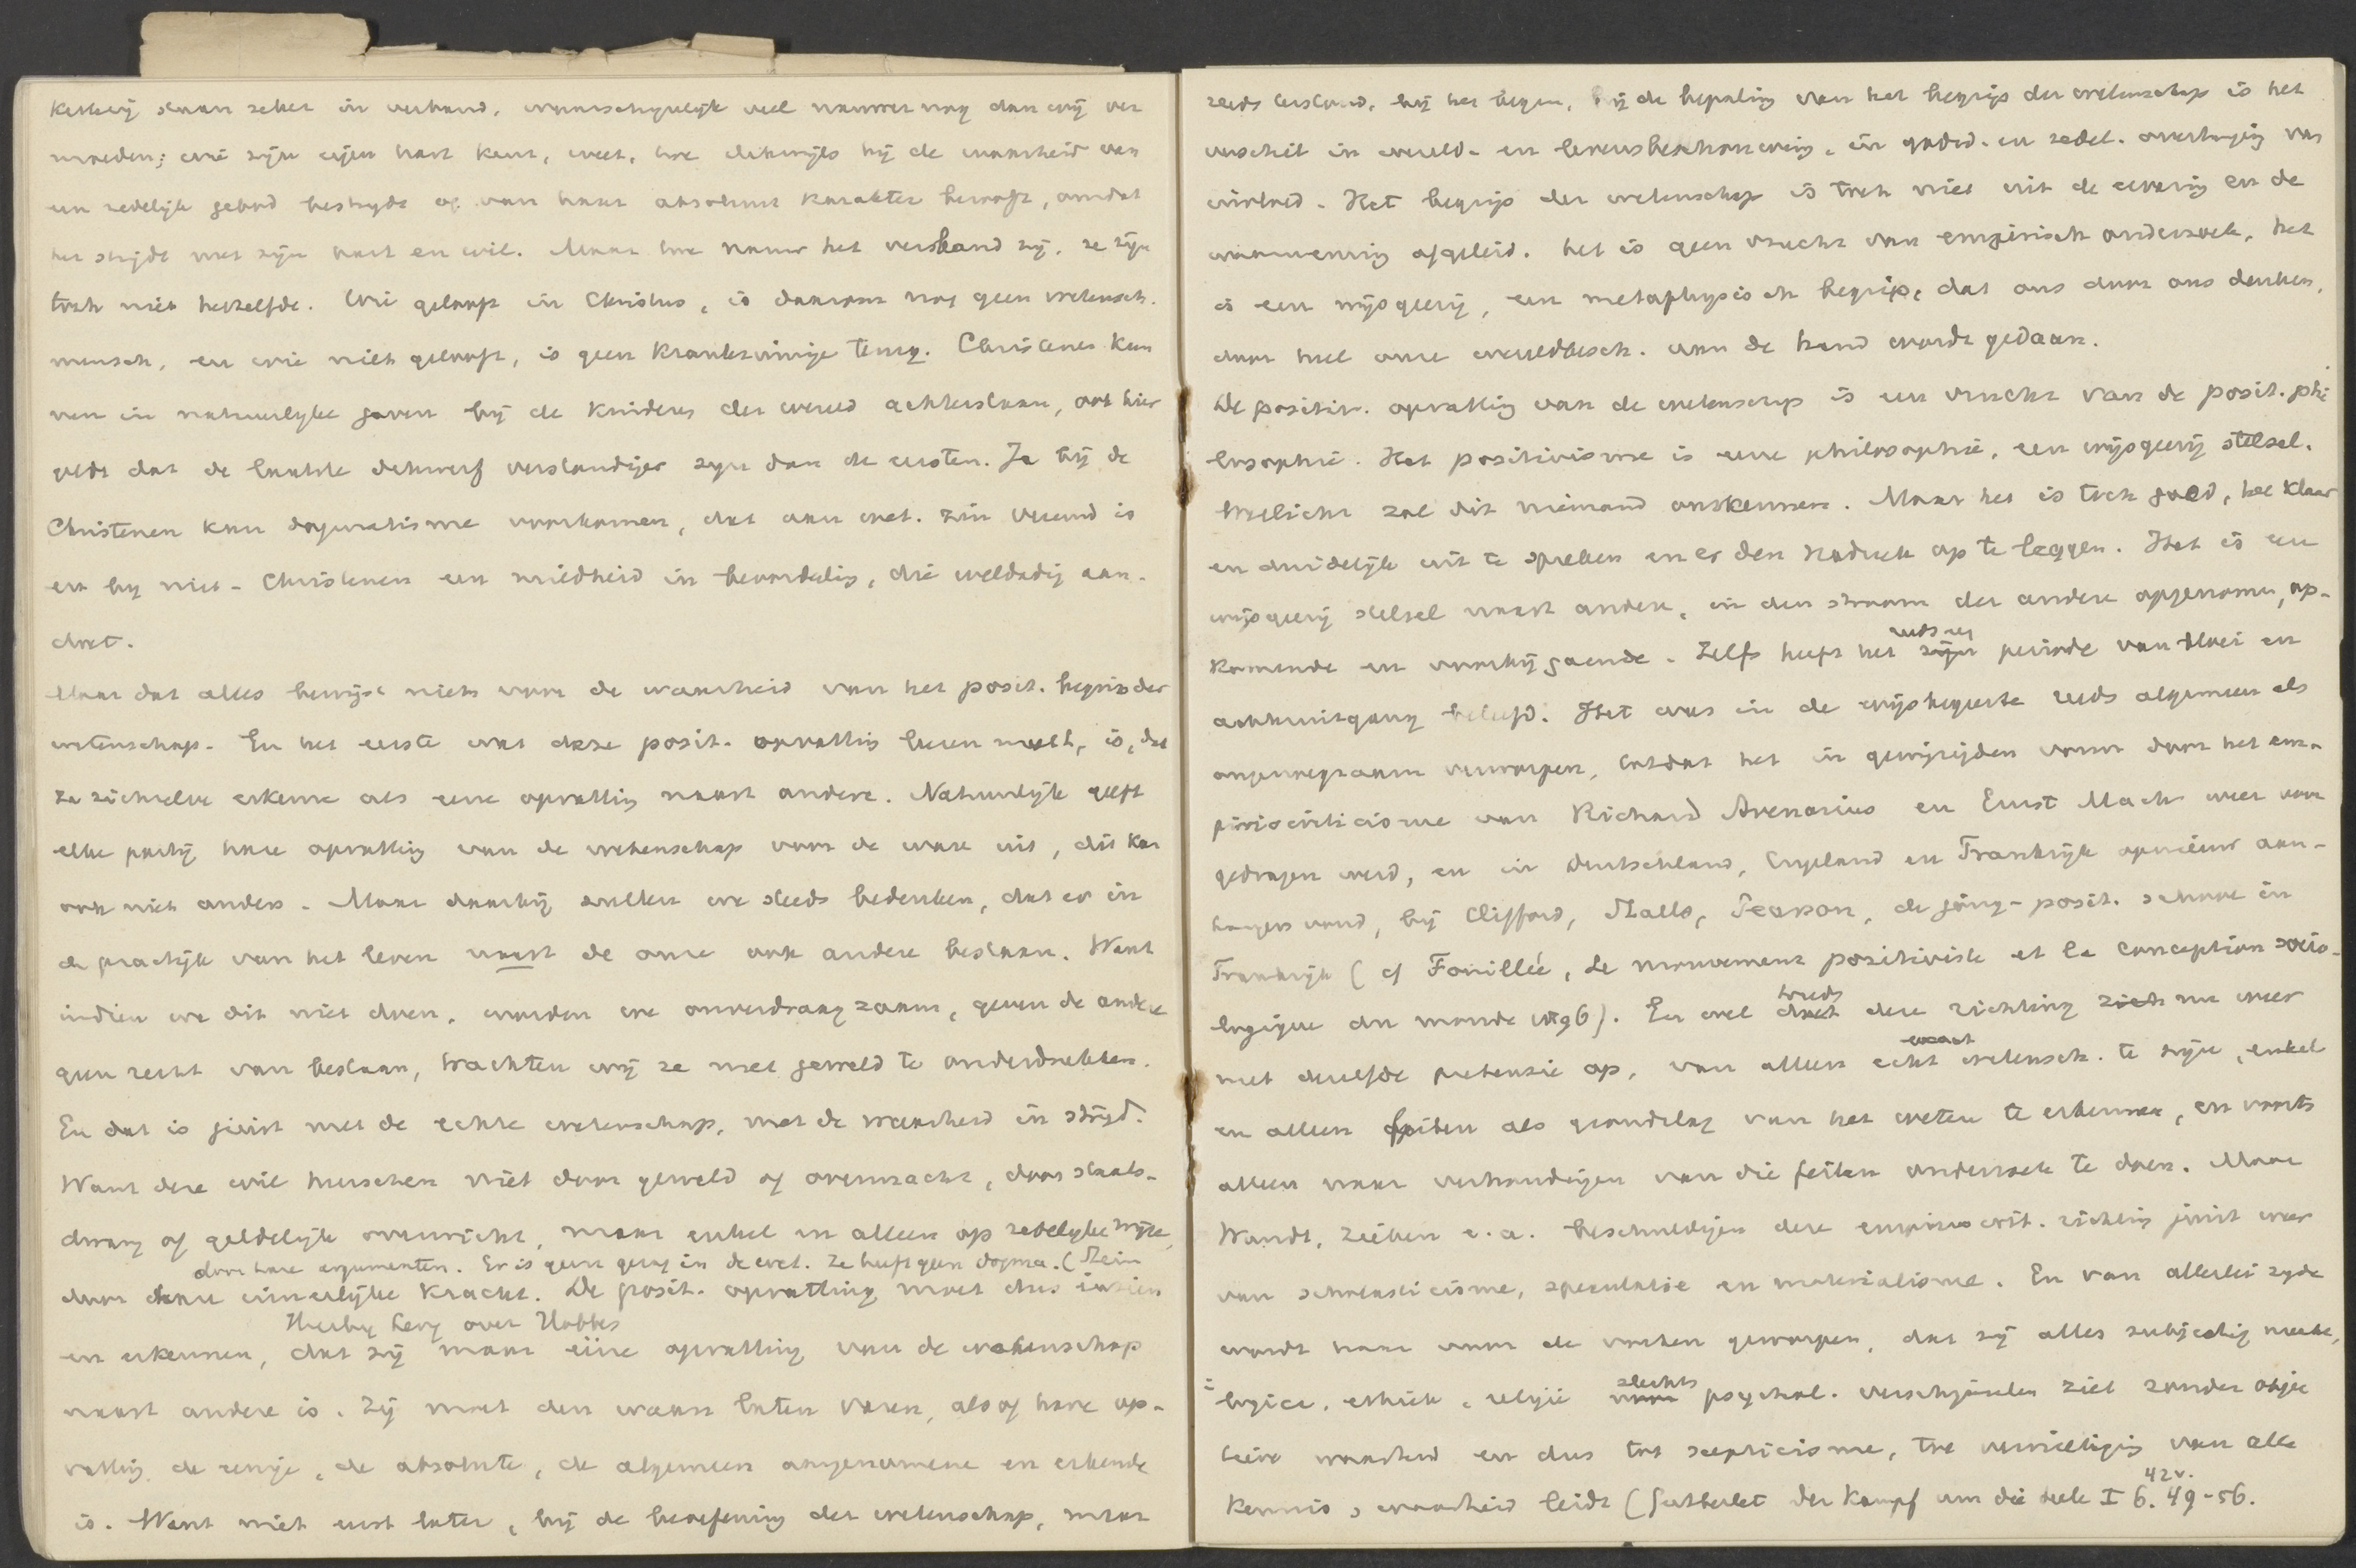 ketterij staan zeker in verband, waarschynelijk veel nauwer nog dan wij ver
moeden; wie zijn eigen hart kent, weet, hoe dikwijls hij de waarheid van
een zedelijk gebod bestrydt of van haar absoluut karakter berooft, omdat
het strijdt met zijn hart en wil. Maar hoe nauw het verband zij, ze zijn
toch niet hetzelfde. Wie gelooft in Christus, is daarom nog geen wetensch.
mensch, en wie niet gelooft, is geen krankzinnige tevens. Christenen kun
nen in natuurlyke gaven bij de kinderen der wereld achterstaan, ook hier
geldt dat de laatste dikwerf verstandiger zyn dan de eersten. Ja bij de
Christenen kan dogmatisme voorkomen, dat aan wet. zin vreemd is
en by niet-Christenen een mildheid in beoordeling, die weldadig aan-
doet.
Maar dat alles bewijst niets voor de waarheid van het posit. begrip der
wetenschap. En het eerste wat deze posit. opvatting leeren moet, is, dat
ze zichzelve erkenne als eene opvatting naast andere. Natuurlijk geeft
elke partij hare opvatting van de wetenschap voor de ware uit, dit kan
ook niet anders. Maar daarbij zullen we steeds bedenken, dat er in
de practijk van het leven naast de onze ook andere bestaan. Want
indien we dit niet doen, worden we onverdraagzaam, geven de andere
geen recht van bestaan, trachten wij ze met geweld te onderdrukken.
En dat is juist met de echte wetenschap, met de waarheid in strijd.
Want deze wil heerschen niet door geweld of overmacht, door staats-
dwang of geldelijk overwicht, maar enkel en alleen op zedelyke wijze,
door hare argumenten. Er is geen gezag in de wet. Ze heeft geen dogma. (Stein
door hare innerlijke kracht. De posit. opvatting moet dus inzien
en erkennen, dat zij maar eéne opvatting van de wetenschap
naast andere is. Zij moet den waan laten varen, alsof hare op-
vatting de eenige, de absolute, de algemeen aangenomene en erkende
is. Want niet eerst later, bij de beoefening der wetenschap, maar
reeds terstond, bij het begin, bij de bepaling van het begrip der wetenschap is het
verschil in wereld- en levensbeschouwing, in godsd. en zedel. overtuiging van
invloed. Het begrip der wetenschap is toch niet uit de ervaring en de
waarneming afgeleid. het is geen vrucht van empirisch onderzoek. het
is een wijsgeerig, een metaphysisch begrip, dat ons door ons denken,
door heel onze wereldbesch. aan de hand wordt gedaan.
De positiv. opvatting van de wetenschap is een vrucht van de posit. phi
losophie. Het positivisme is eene philosophie, een wijsgeerig stelsel.
Wellicht zal dit niemand ontkennen. Maar het is toch goed, het klaar
en duidelijk uit te spreken en er den nadruk op te leggen. Het is een
wijsgeerig stelsel naast andere, in den stroom der andere opgenomen, op-
komende en voorbijgaande. Zelfs heeft het reeds zijn periode van bloei en
achteruitgang beleefd. Het was in de wijsbegeerte reeds algemeen als
ongenoegzaam verworpen, totdat het in gewijzigden vorm door het em-
piriocriticisme van Richard Avenarius en Ernst Mach weer voor
gedragen werd, en in Deutschland, Engeland en Frankrijk opnieuw aan-
hangers vond, bij Clifford, Stallo, Pearson, de jong-posit. school in
Frankrijk (cf Fouillée, Le mouvement positiviste et la conception socio-
logique du monde 1896). En wel treedt deze richting nu weer
met dezelfde pretensie op, van alleen exact wetensch. te zijn, enkel
en alleen feiten als grondslag van het weten te erkennen, en voorts
alleen naar verhoudingen van die feiten onderzoek te doen. Maar
Wundt, Ziehen e.a. beschuldigen deze empiriocrit. richting juist weer
van scholasticisme, speculatie en materialisme. En van allerlei zyde
wordt haar voor de voeten geworpen, dat zij alles subjectief maakt,
in logica, ethiek, religie slechts psychol. verschijnselen ziet zonder objec
tieve waarheid en dus tot scepticisme, tot vernietiging van alle
kennis, waarheid leidt (Gutberlet der Kampf um die Seele I 6. 42v. 49-56.